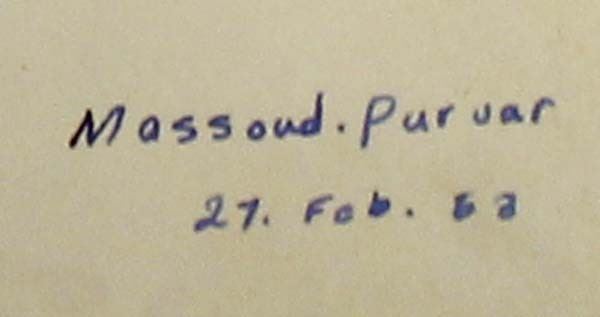 Massoud. Purvar
27. Feb.